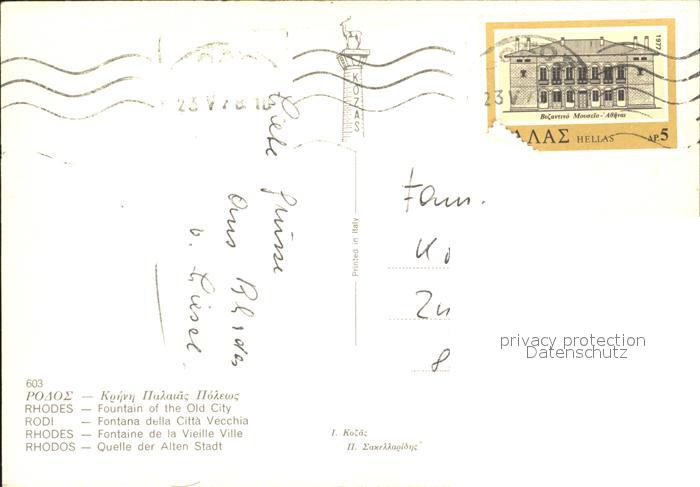 23 V 78 10
KOZAS
23 V 7
1977
Βυζαντινὸ Μουσεῖο - Ἀθῆναι
ΛΑΣ HELLAS ΔΡ.5
Liebe Grüsse
aus Rhodos
v. Liesel
Printed in Italy
Fam.
K
Zu
8
privacy protection
Datenschutz
603
ΡΟΔΟΣ — Κρήνη Παλαιᾶς Πόλεως
RHODES — Fountain of the Old City
RODI — Fontana della Città Vecchia
RHODES — Fontaine de la Vieille Ville
RHODOS — Quelle der Alten Stadt
Ι. Κοζᾶς
Π. Σακελλαρίδης